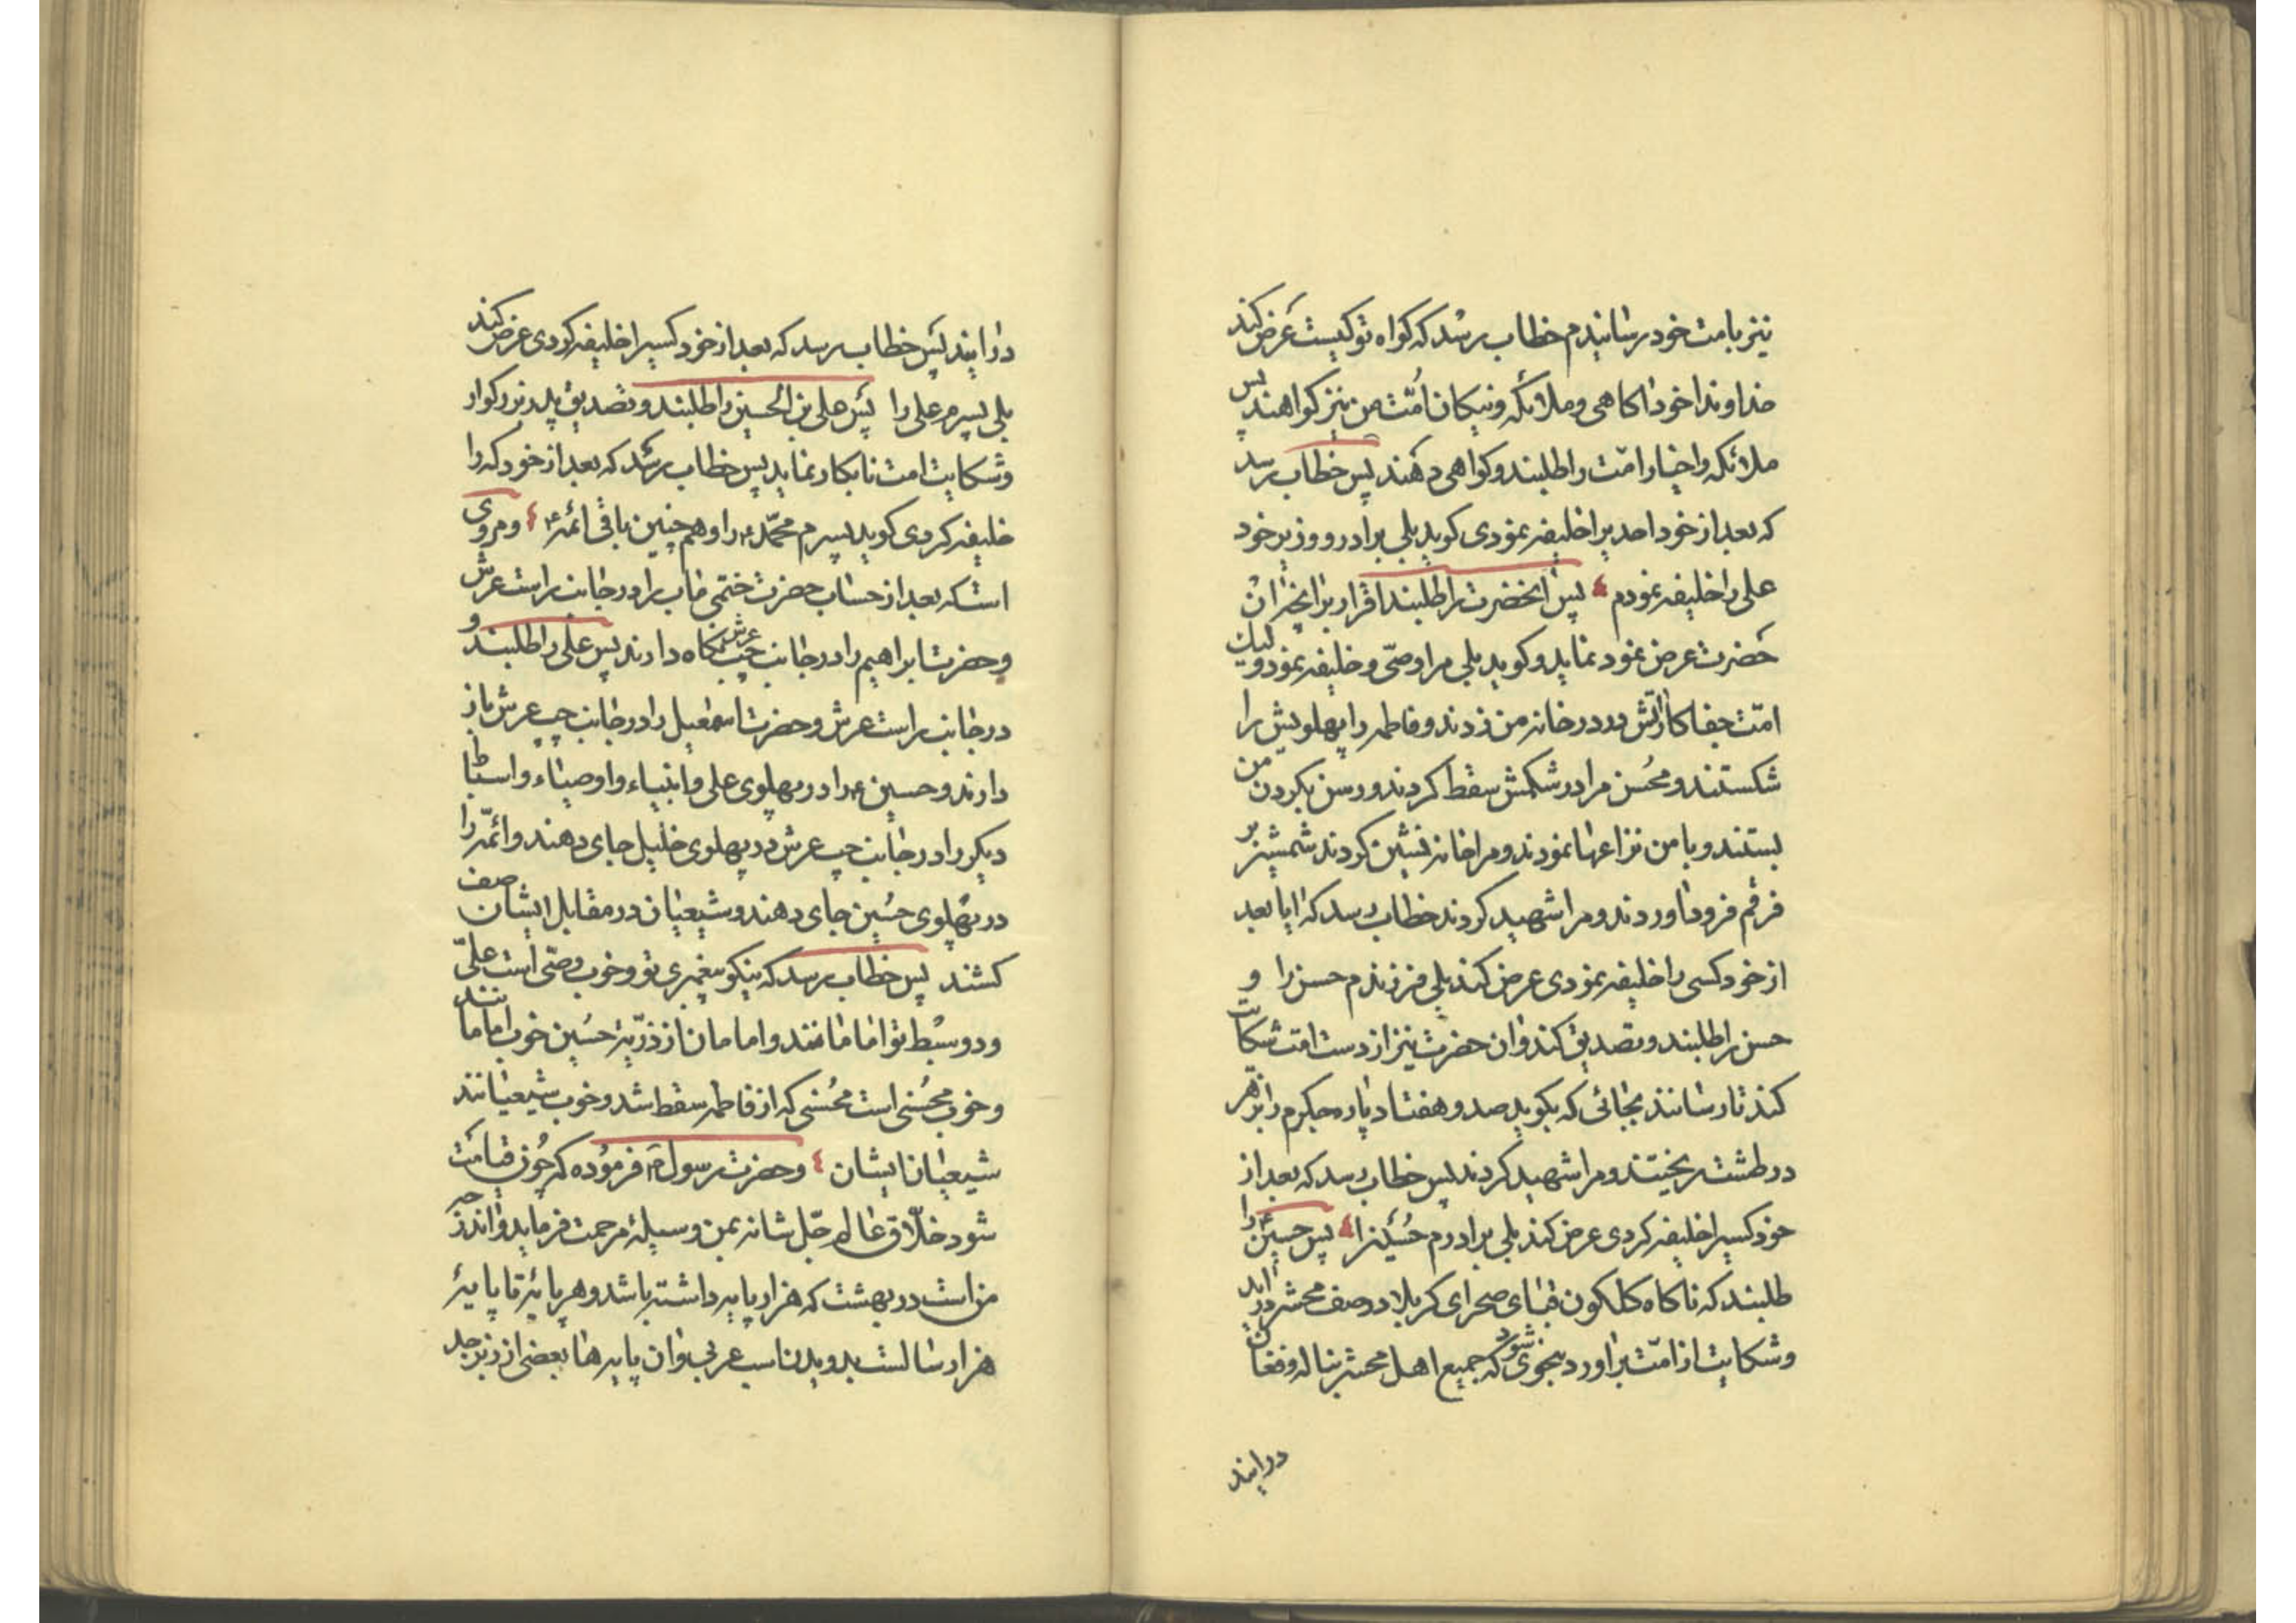 نیز بامت خود رسانیدم خطاب رسد که کواه تو کیست عرض کند
خداوندا خود اکاهی و ملائکه و نیکان امّت من نیز کواهند پس
ملائکه واخیار امّت را طلبند و کواهی دهند پس خطاب رسد
که بعد از خود احدیرا خلیفه نمودی کوید بلی برادر و وزیر خود
علی را خلیفه نمودم پس انحضرت را طلبند اقرار برانچه ان
حضرت عرض نمود نماید و کوید بلی مرا وصّی و خلیفه نمود ولیک
امّت جفاکار اتش در در خانه من زدند و فاطمه را پهلویش را
شکستند و محُسن مرا در شکمش سقط کردند و رسن بکردن من
بستند و با من نزاعها نمودند و مرا خانه نشین کردند شمشیر بر
فرقم فرود اوردند و مرا شهید کردند خطاب رسد که ایا بعد
از خود کسی را خلیفه نمودی عرض کند بلی فرزندم حسن را و
حسن را طلبند و تصدیق کند و ان حضرت نیز از دست امّت شکایت
کند تا رسانند بجائی که بکوید صد و هفتاد پاره جکرم را بزهر
در طشت ریختند و مرا شهید کردند پس خطاب رسد که بعد از
خود کسیرا خلیفه کردی عرض کند بلی برادرم حُسَین را پس حسین را
طلبند که ناکاه کلکون قبای صحرای کربلا در صف محشر در اید
و شکایت از امّت براورد بنحوی شود که جمیع اهل محشر بناله و فغان
درایند
درایند پس خطاب رسد که بعد از خود کسیرا خلیفه کردی عرض کند
بلی پسرم علی را پس علی بن الحسین را طلبند و تصدیق پدر بزرکوار
و شکایت امت نابکار نماید پس خطاب رسد که بعد از خود که را
خلیفه کردی کوید پسرم محمّد ع را و هم چنین باقی ائمّه ع و مروی
است که بعد از حساب حضرت ختمی ماب را در جانب راست عرش
و حضرت ابراهیم را در جانب چپ عرش نکاه دارند پس علی را طلبند و
در جانب راست عرش و حضرت اسمعیل را در جانب چپ عرش باز
دارند و حسین ع را در پهلوی علی و انبیاء و اوصیاء و اسباط
دیکر را در جانب چپ عرش در پهلوی خلیل جای دهند و ائمّه را
در پهلوی حسُین جای دهند و شیعیان در مقابل ایشان صف
کشند پس خطاب رسد که نیکو پیغمبری تو و خوب وصّی است علیّ
و دو سبط تو امامانند و امامان از ذرّیهٔ حسُین خوب امامانند
و خوب محسُنی است محُسنی که از فاطمه سقط شد و خوب شیعیانند
شیعیان ایشان و حضرت رسول ص فرموده که چون قیامت
شود خلّاق عالم جلّ شانه بمن وسیلهٔ مرحمت فرماید و ان درجه
من است در بهشت که هزار پایه داشته باشد و هر پایه تا پایهٔ
هزار سالست بدویدن اسب عربی و ان پایه ها بعضی از زبرجد